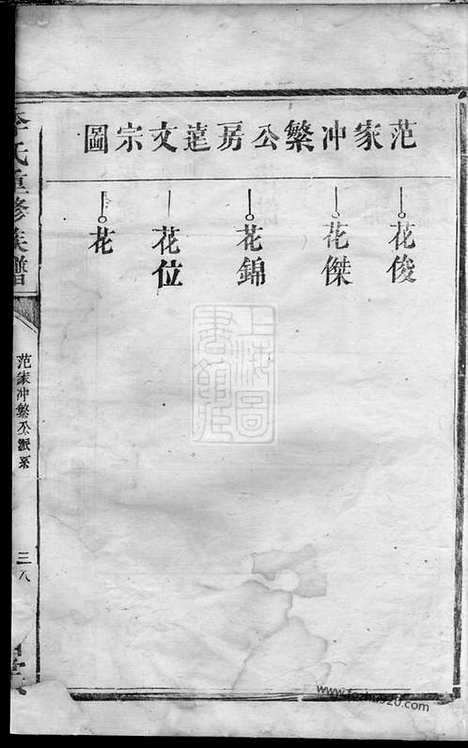 范家冲繁公房達文宗圖
花俊
花傑
花錦
花位
花
氏重修族譜
范家冲繁公派系
三八
上海圖書館藏
www.fozhu920.com